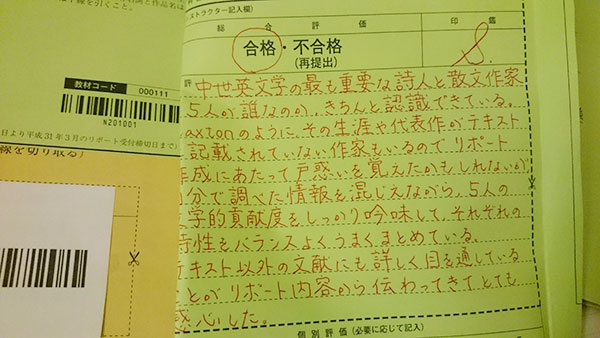 と作品名は
線を引くこと。
教材コード 000111
N201001
日より平成31年3月のリポート受付締切日まで)
線を切り取る)
ストラクター記入欄)
総合評価
印鑑
合格・不合格
(再提出)
S.
評 中世英文学の最も重要な詩人と散文作家
5人が誰なのか、きちんと認識できている。
axtonのように、その生涯や代表作がテキスト
記載されていない作家もいるのでリポート
作成にあたって戸惑いを覚えたかもしれないが
自分で調べた情報を混じえながら、5人の
文学的貢献度をしっかり吟味して、それぞれの
特性をバランスよくうまくまとめている。
テキスト以外の文献にも詳しく目を通している
ことがリポート内容から伝わってきてとても
感心した。
個別評価(必要に応じて記入)